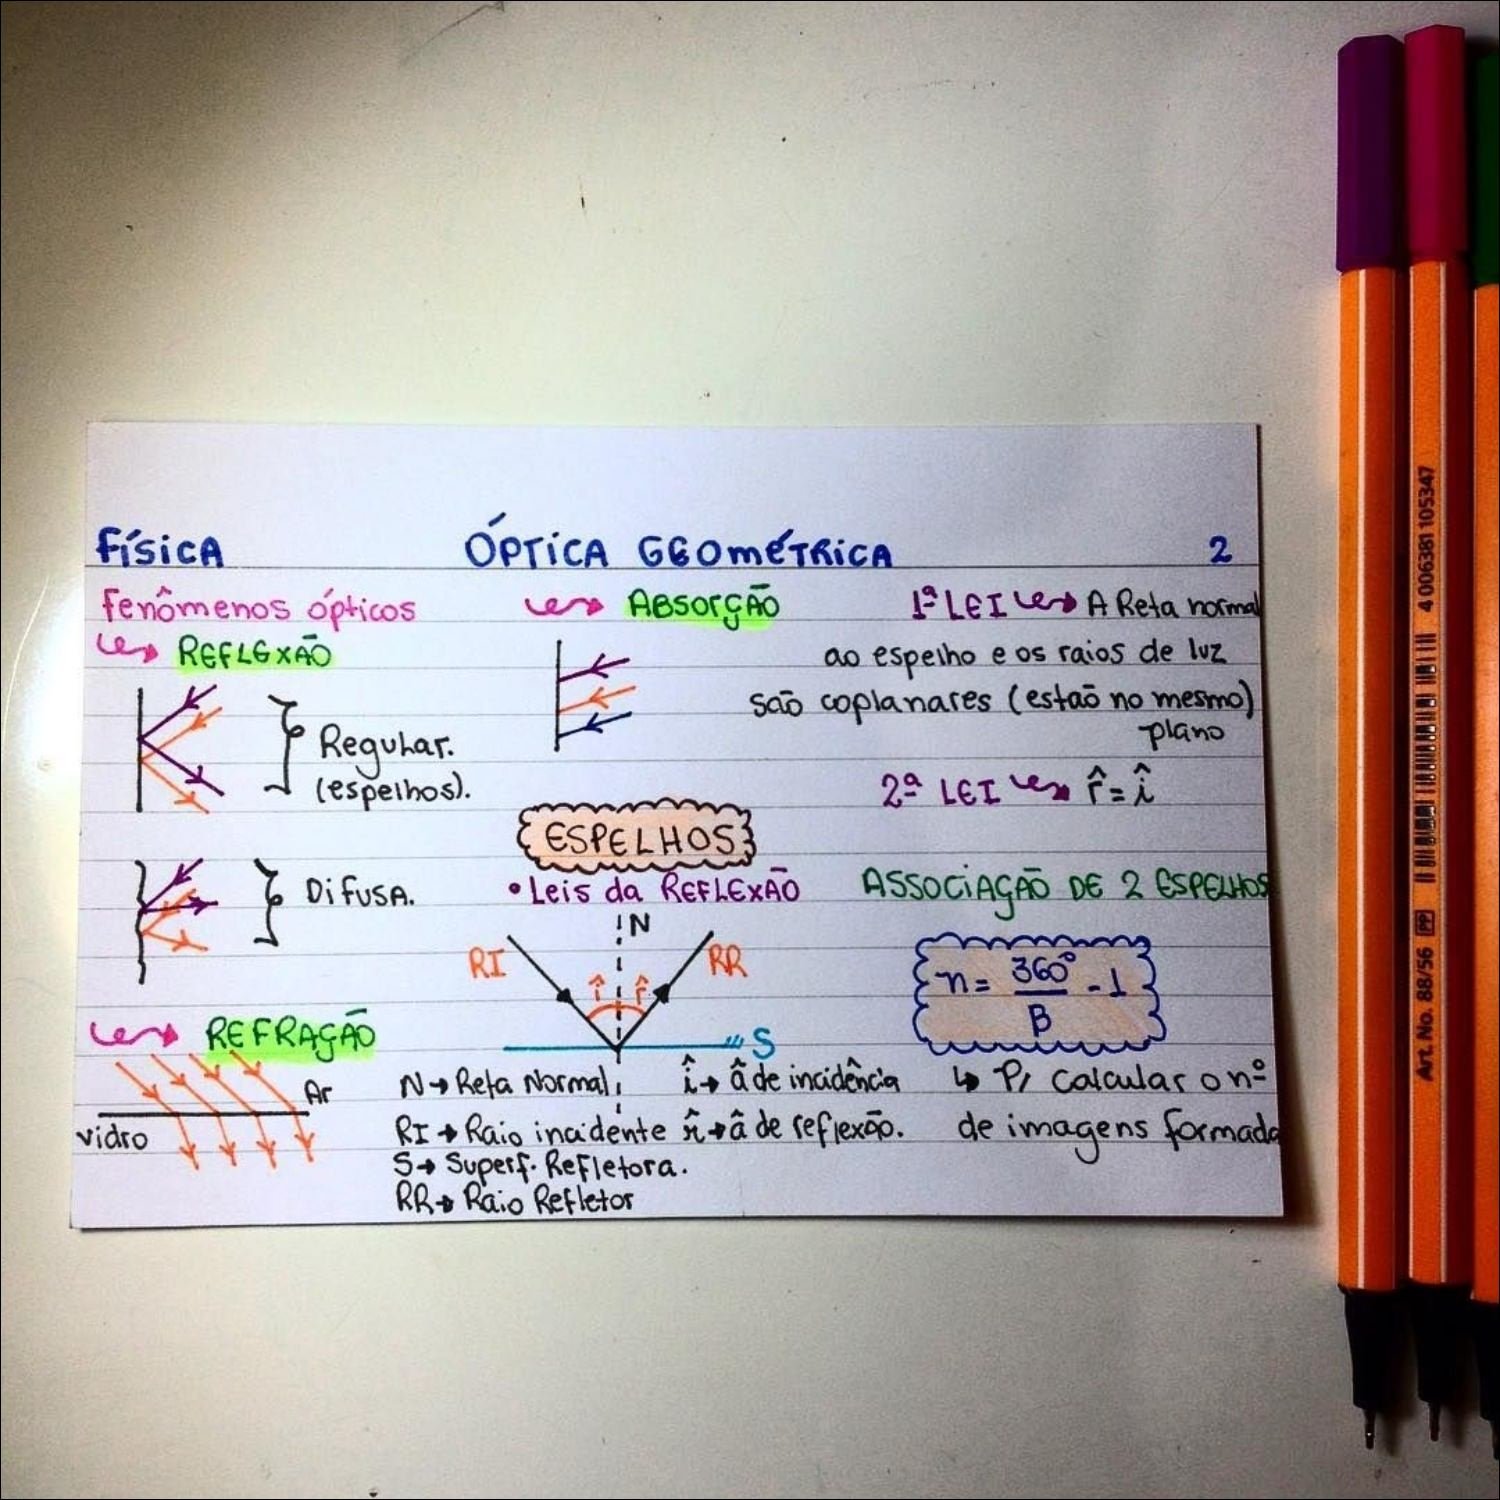 Física ÓPTICA GEOMÉTRICA 2
Fenômenos ópticos
REFLEXÃO
Regular.
(espelhos).
Difusa.
REFRAÇÃO
Ar
vidro
ABSORÇÃO
ESPELHOS
• Leis da REFLEXÃO
N
RI RR
î r̂
S
N → Reta Normal
RI → Raio incidente
S → Superf. Refletora.
RR → Raio Refletor
î → â de incidência
r̂ → â de reflexão.
1ª LEI A Reta normal
ao espelho e os raios de luz
saõ coplanares (estaõ no mesmo)
plano
2ª LEI r̂ = î
ASSOCIAÇAÕ DE 2 ESPELHOS
n = 360° / B - 1
↳ P/ calcular o nº
de imagens formada
Art. No. 88/56 PP 4 006381 105347